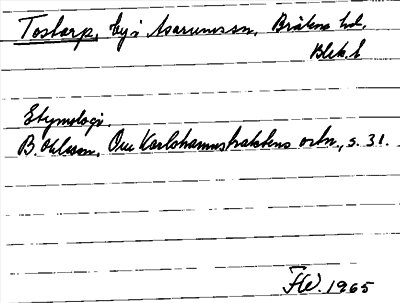 Tostarp, by i Asarums sn, Bräkne hd.
Blek. l
Etymologi.
B. Ohlsson, Om Karlshamnstraktens ortn., s. 31.
FW. 1965